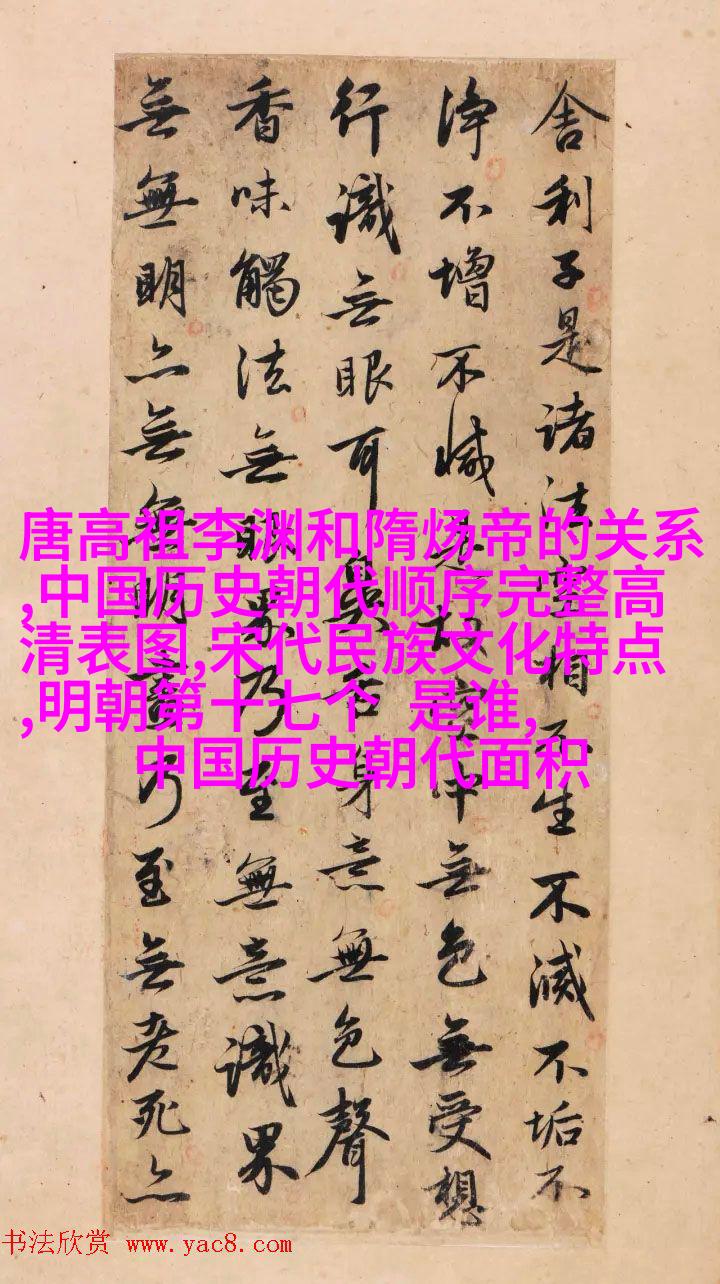 舍利子是諸法空相不生不滅不垢不
淨不增不減是故空中無色無受想
行識无眼耳鼻舌身意無色聲
香味觸法無眼界乃至無意識界
無無明亦無無明盡乃至無老死亦
唐高祖李渊和隋炀帝的关系
,中国历史朝代顺序完整高
清表图,宋代民族文化特点
,明朝第十七个 是谁,
中国历史朝代面积
书法欣赏 www.yac8.com